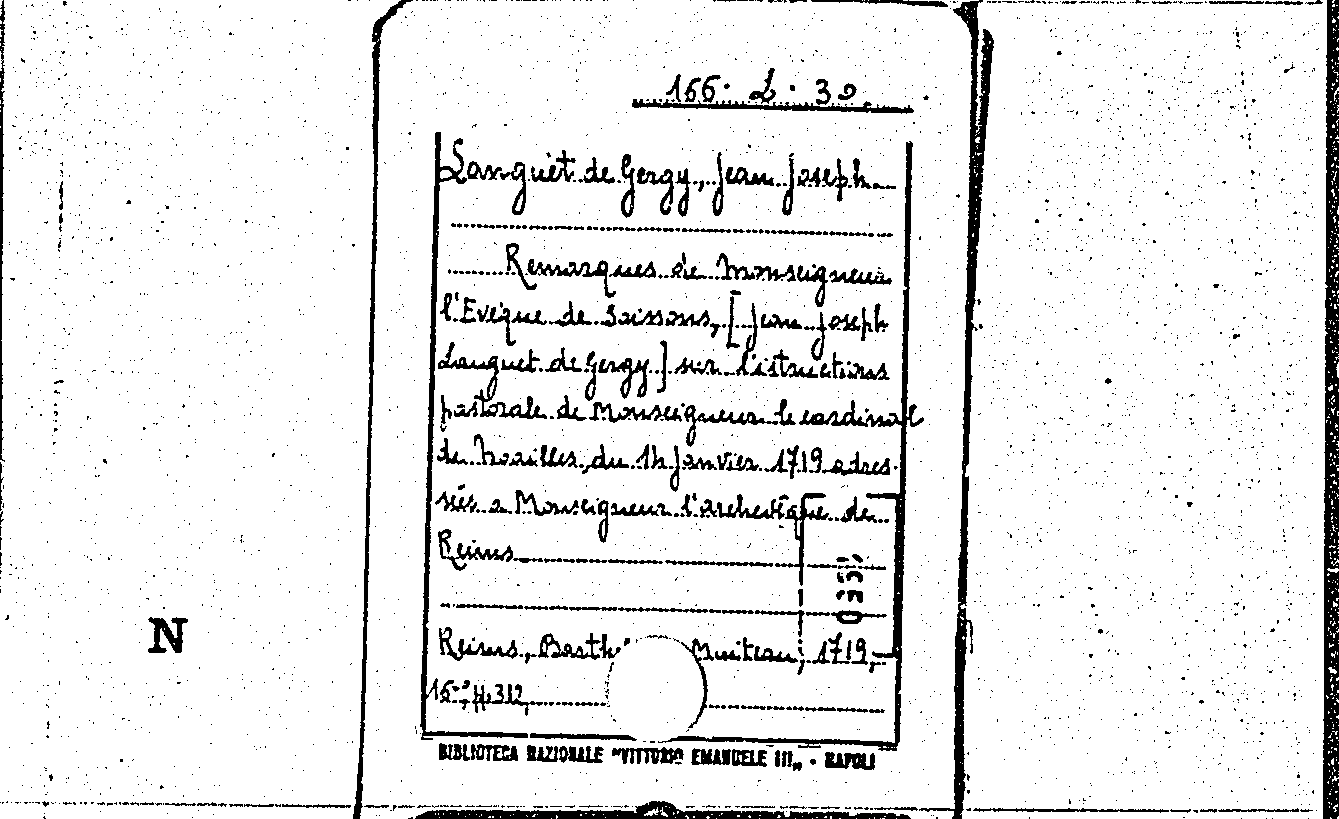 166. L. 30.
Languet de Gergy, Jean Joseph
Remarques de Monseigneur
l'Evêque de Soissons, [Jean Joseph
Languet de Gergy] sur l'istructions
pastorale de Monseigneur le cardinal
de Noailles, du 14 Janvier 1719 adres-
sées a Monseigneur l'archevêque de
Reims
Reims, Barth Muiteau, 1719,
16°, pp. 312,
N
BIBLIOTECA NAZIONALE "VITTORIO EMANUELE III" - NAPOLI